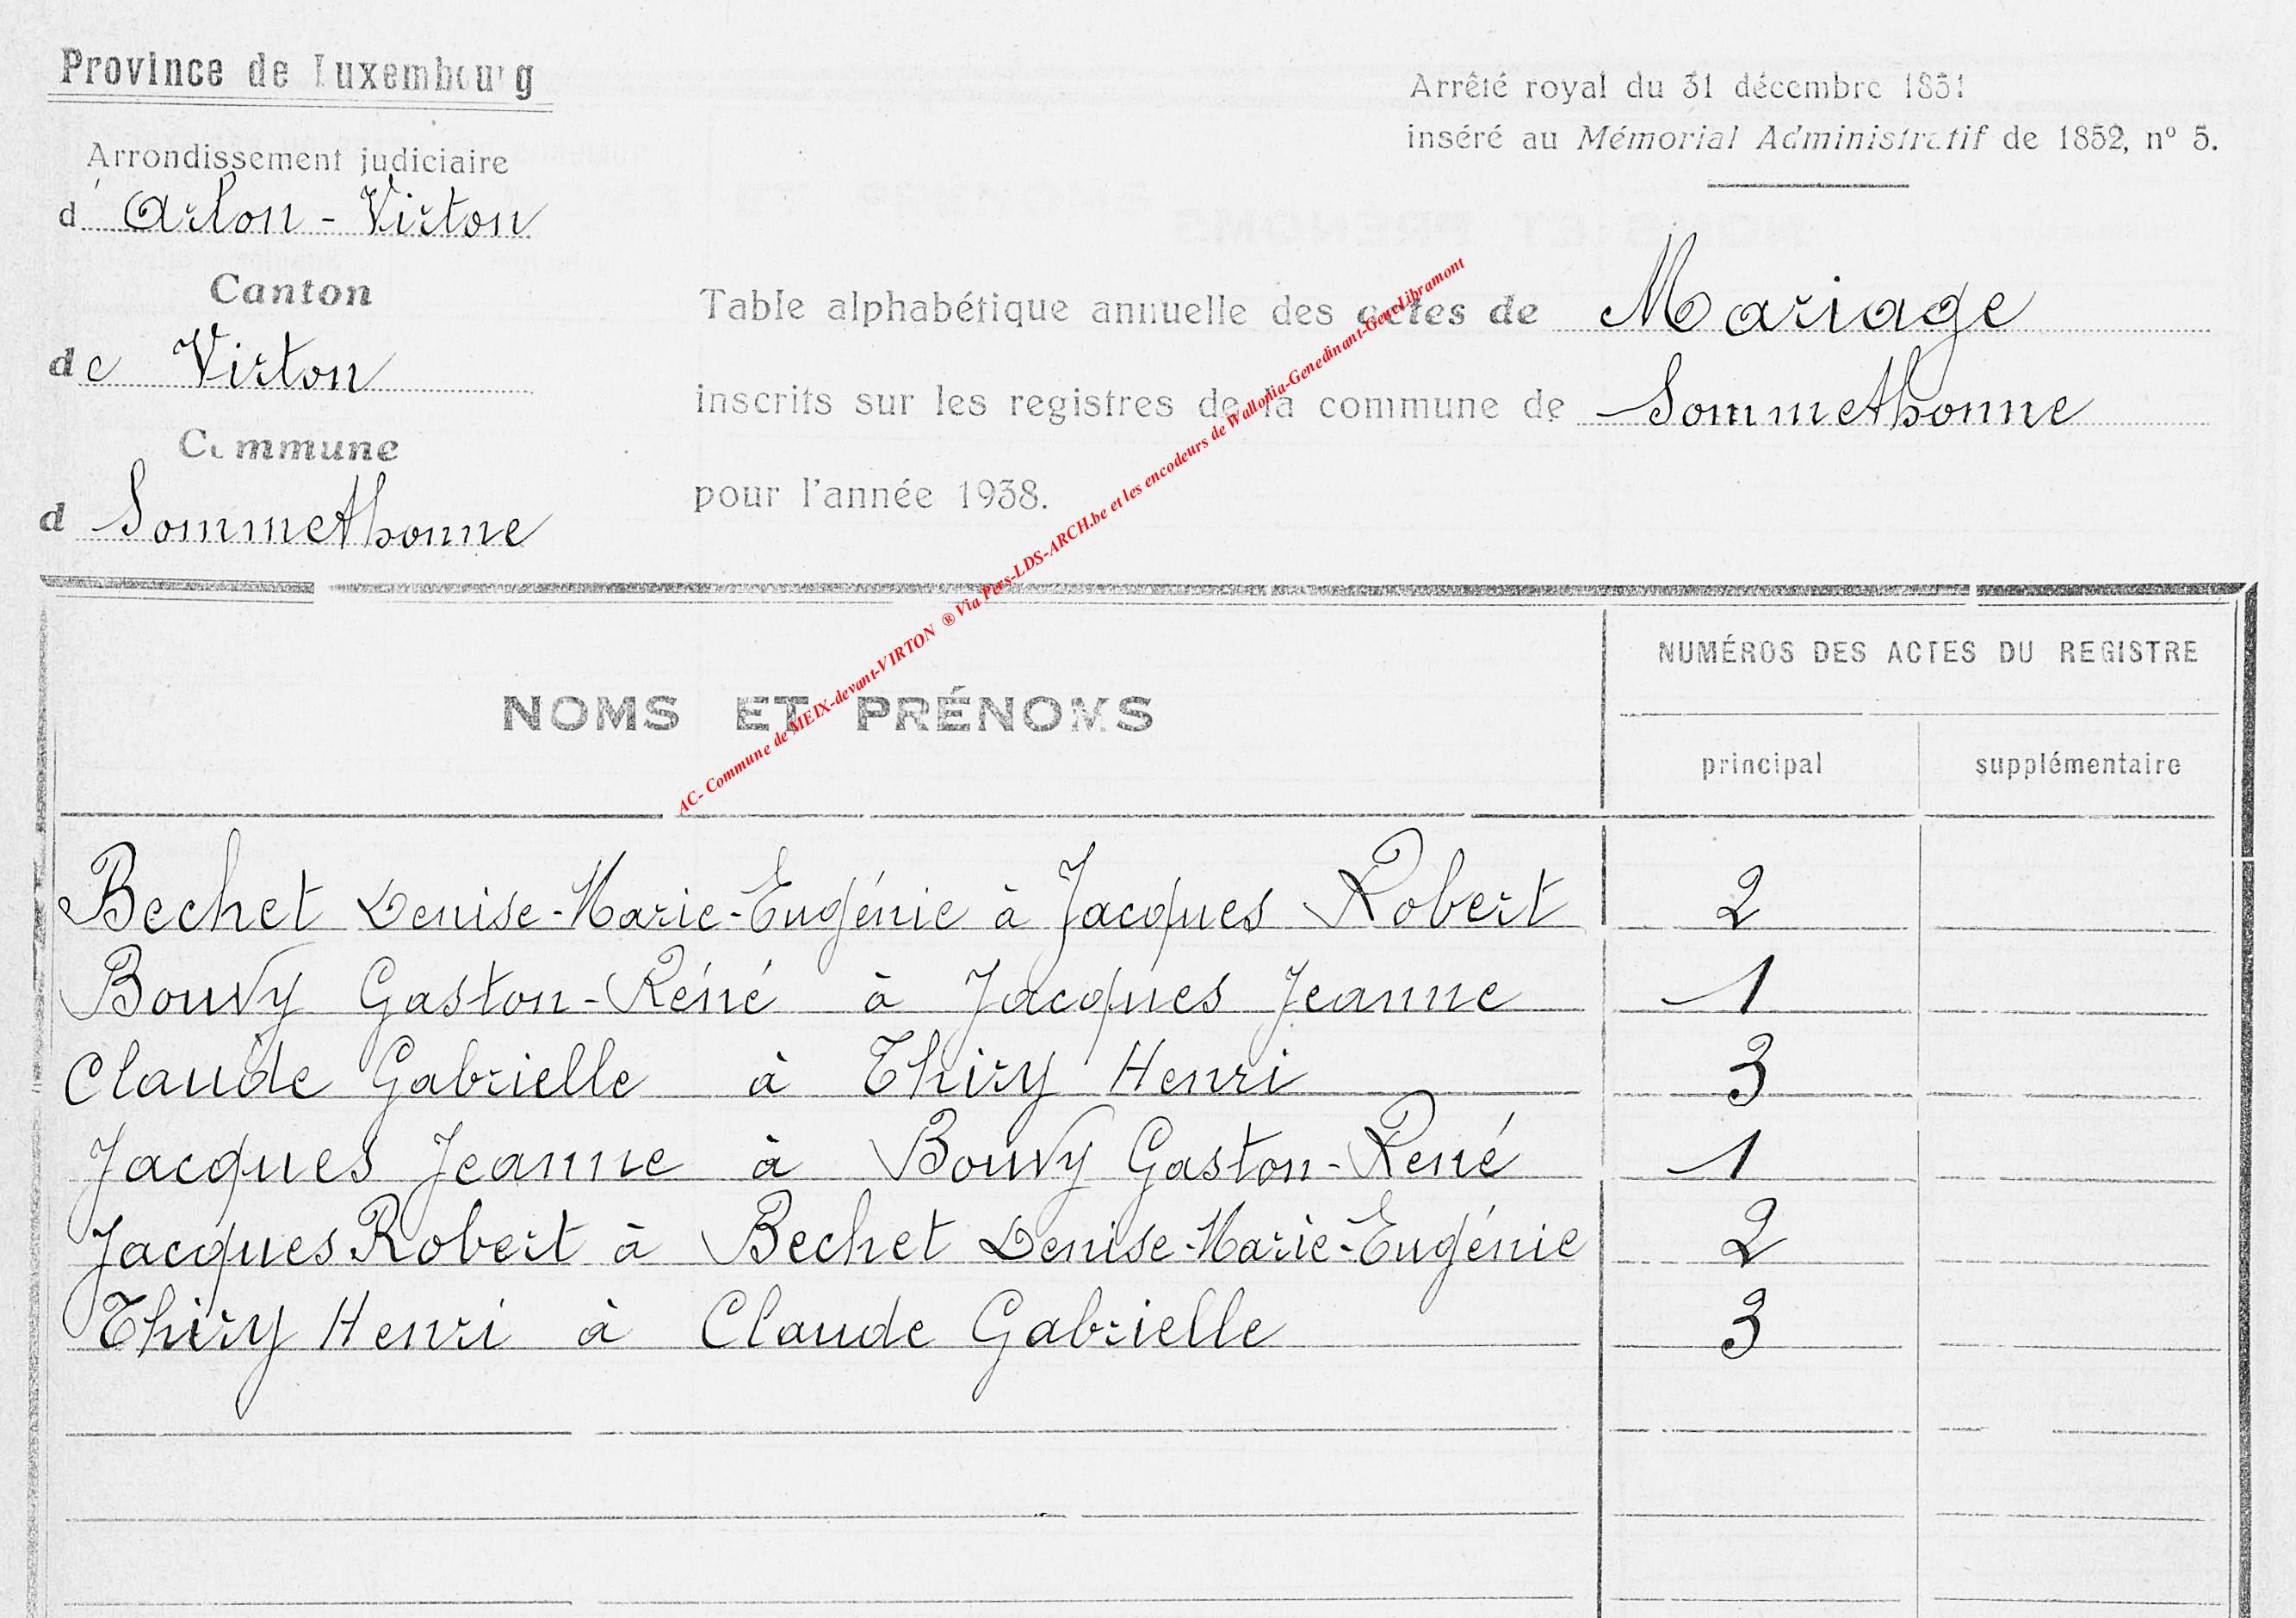 Province de Luxembourg
Arrêté royal du 31 décembre 1851
inséré au Mémorial Administratif de 1852, n° 5.
Arrondissement judiciaire
d' Arlon - Virton
Canton
de Virton
Commune
d Sommethonne
Table alphabétique annuelle des actes de Mariage
inscrits sur les registres de la commune de Sommethonne
pour l'année 1938.
AC- Commune de MEIX-devant-VIRTON ® Via Pers-LDS-ARCH.be et les encodeurs de Wallonia-Genedinant-GeneLibramont
NOMS ET PRÉNOMS
NUMÉROS DES ACTES DU REGISTRE
principal supplémentaire
Bechet Denise-Marie-Eugénie à Jacques Robert 2
Bouvy Gaston-Réné à Jacques Jeanne 1
Claude Gabrielle à Thiry Henri 3
Jacques Jeanne à Bouvy Gaston-René 1
Jacques Robert à Bechet Denise-Marie-Eugénie 2
Thiry Henri à Claude Gabrielle 3